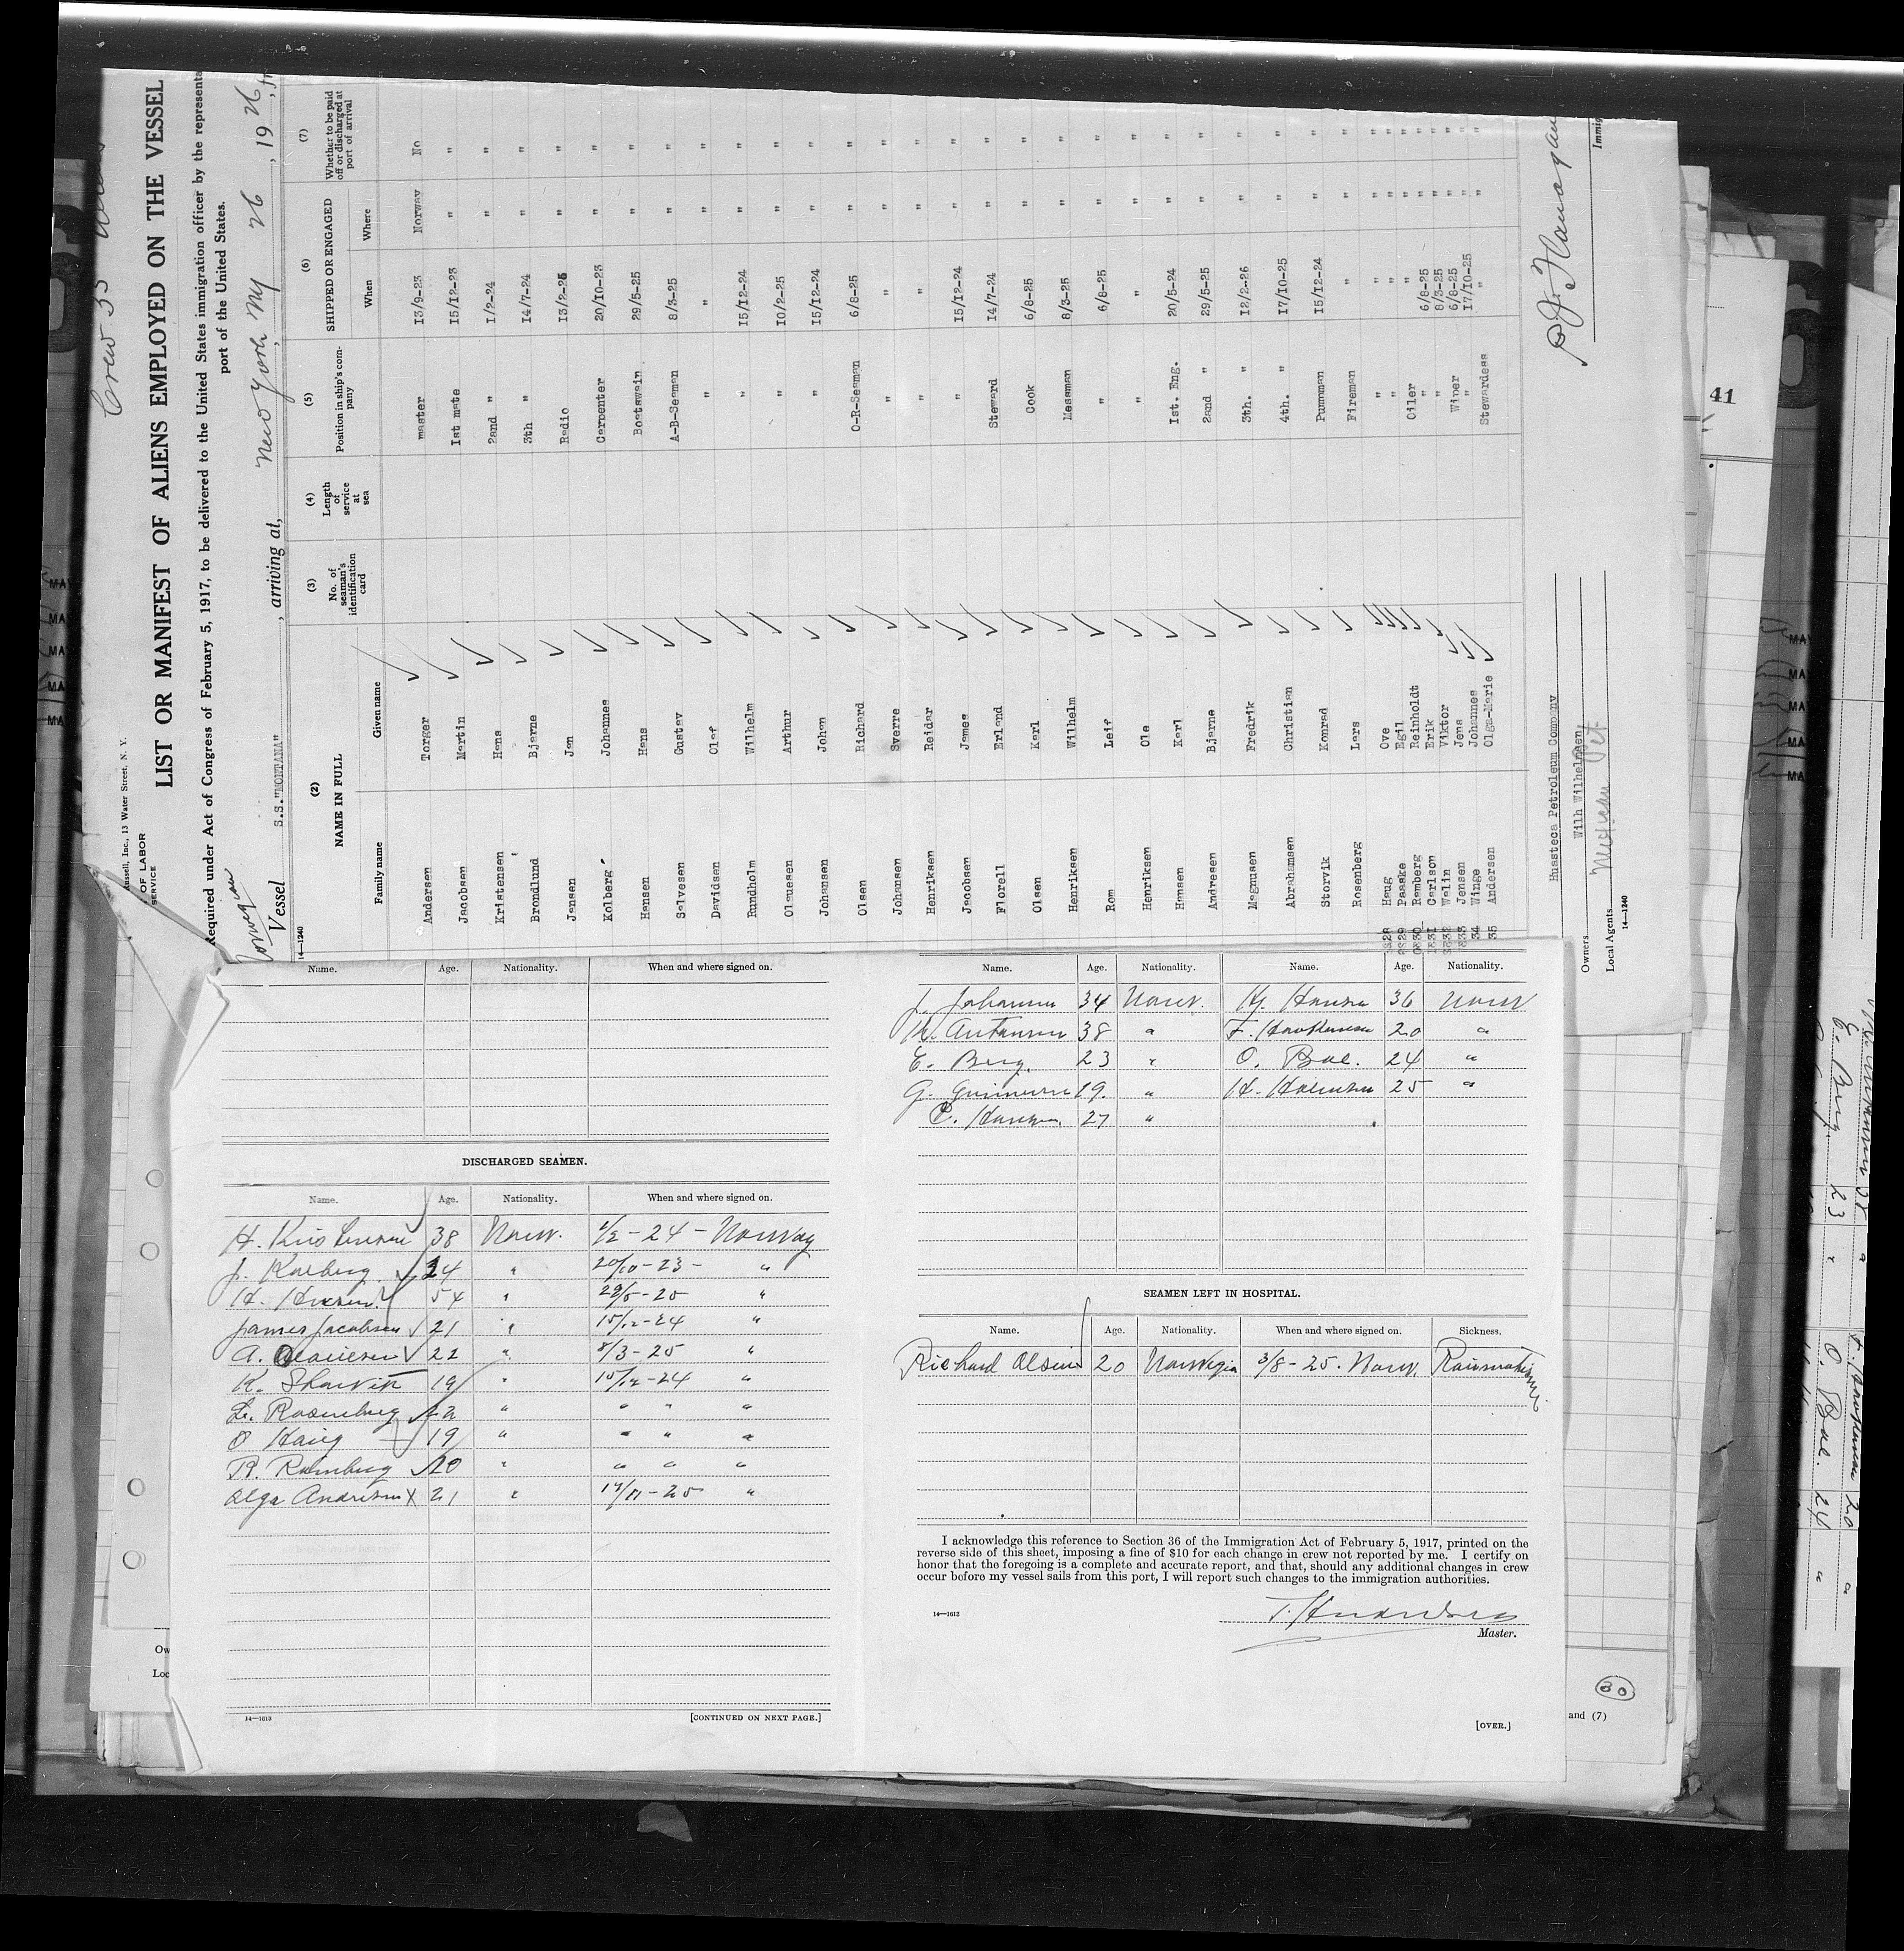 Crew 35
Russell, Inc., 13 Water Street, N. Y.
OF LABOR
SERVICE
LIST OR MANIFEST OF ALIENS EMPLOYED ON THE VESSEL
Required under Act of Congress of February 5, 1917, to be delivered to the United States immigration officer by the representa
port of the United States.
Vessel S.S."MONTANA", arriving at, New York NY 26, 1926, fr
14—1240
(2) (3) (4) (5) (6) (7)
NAME IN FULL No. of seaman's identification card Length of service at sea Position in ship's company SHIPPED OR ENGAGED Whether to be paid off or discharged at port of arrival
Family name Given name When Where
Andersen Torger master 13/9-23 Norway No
Jacobsen Martin Ist mate 15/12-23 " "
Kristensen Hans 2and " 1/2-24 " "
Brondlund Bjarne 3th " 14/7-24 " "
Jensen Jan Radio 13/2-25 " "
Kolberg Johannes Carpenter 20/10-23 " "
Hansen Hans Boatswain 29/5-25 " "
Salvesen Gustav A-B-Seaman 8/3-25 " "
Davidsen Olaf " " " "
Rundholm Wilhelm " 15/12-24 " "
Olausen Arthur " 10/2-25 " "
Johansen Johan " 15/12-24 " "
Olsen Richard O-R-Seaman 6/8-25 " "
Johansen Sverre " " " "
Henriksen Reidar " " " "
Jacobsen James " 15/12-24 " "
Florell Erland Steward 14/7-24 " "
Olsen Karl Cook 6/8-25 " "
Henriksen Wilhelm Messman 8/3-25 " "
Rom Leif " 6/8-25 " "
Henriksen Ole " " " "
Hansen Karl Ist. Eng. 20/5-24 " "
Andresen Bjarne 2and " 29/5-25 " "
Magnusen Fredrik 3th. " 12/2-26 " "
Abrahamsen Christian 4th. " 17/10-25 " "
Storvik Konrad Pumpman 15/12-24 " "
Rosenberg Lars Fireman " " "
Haug Ove " " " "
Paaske Egil " " " "
Ramberg Reinholdt Oiler " " "
Carlson Erik " 6/8-25 " "
Walin Viktor " 8/3-25 " "
Jensen Jens Wiper 6/8-25 " "
34 Winge Johannes " 17/10-25 " "
35 Andersen Olga-Marie Stewardess " " "
Huasteca Petroleum Company
Owners Wilh Wilhelmsen
Local Agents Mexican Pet
14—1240
Immig
Name. Age. Nationality. When and where signed on.
DISCHARGED SEAMEN.
Name. Age. Nationality. When and where signed on.
H. Kristensen 38 Norw. 1/2-24 - Norway
J. Kolberg 24 " 20/10-23- "
H. Hansen 54 " 29/5-25 "
James Jacobsen 21 " 15/12-24 "
A. Olausen 22 " 8/3-25 "
K. Storvik 19 " 15/12-24 "
L. Rosenberg " " " "
O Haug 19 " " " "
R. Ramberg 20 " " " "
Olga Andersen X 21 " "
14—1613
[CONTINUED ON NEXT PAGE.]
Name. Age. Nationality. Name. Age. Nationality.
J. Johansen 34 Norw. Hj. Hansen 36 Norw
38 " F. 20 "
E. Berg. 23 " O. Bae. 24 "
G. 19. " H. 25 "
27 "
SEAMEN LEFT IN HOSPITAL.
Name. Age. Nationality. When and where signed on. Sickness.
Richard Olsen 20 Norwegia 3/8-25. Norw.
I acknowledge this reference to Section 36 of the Immigration Act of February 5, 1917, printed on the
reverse side of this sheet, imposing a fine of $10 for each change in crew not reported by me. I certify on
honor that the foregoing is a complete and accurate report, and that, should any additional changes in crew
occur before my vessel sails from this port, I will report such changes to the immigration authorities.
14—1613
Master.
[OVER.]
41
and (7)
30
Ow
Loc
E. Berg. 23 "
O. Bae. 24 "